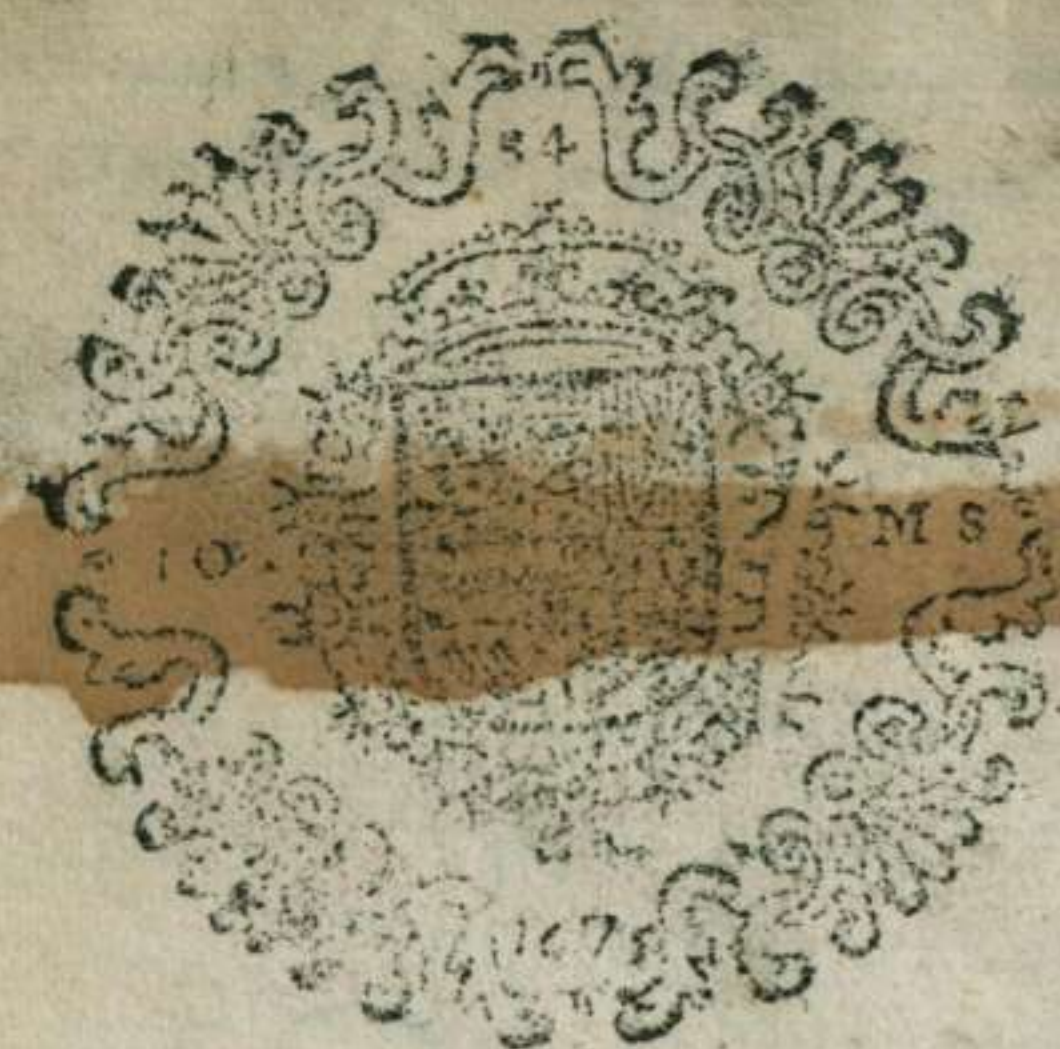 54
10. MS
167